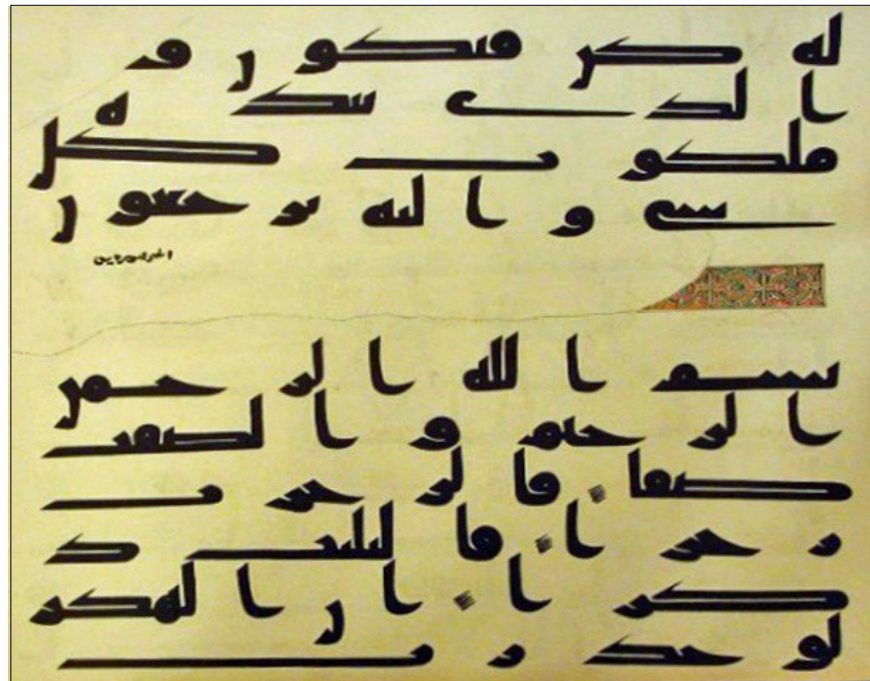 له كن فيكون ف
الذي بيده
ملكوت كل
شي و اليه ترجعون
بسم الله الرحمن
الرحيم والصفت
صفا فالزجرت
زجرا فالتليت ذ
كرا ان الهكم
لوحد رب